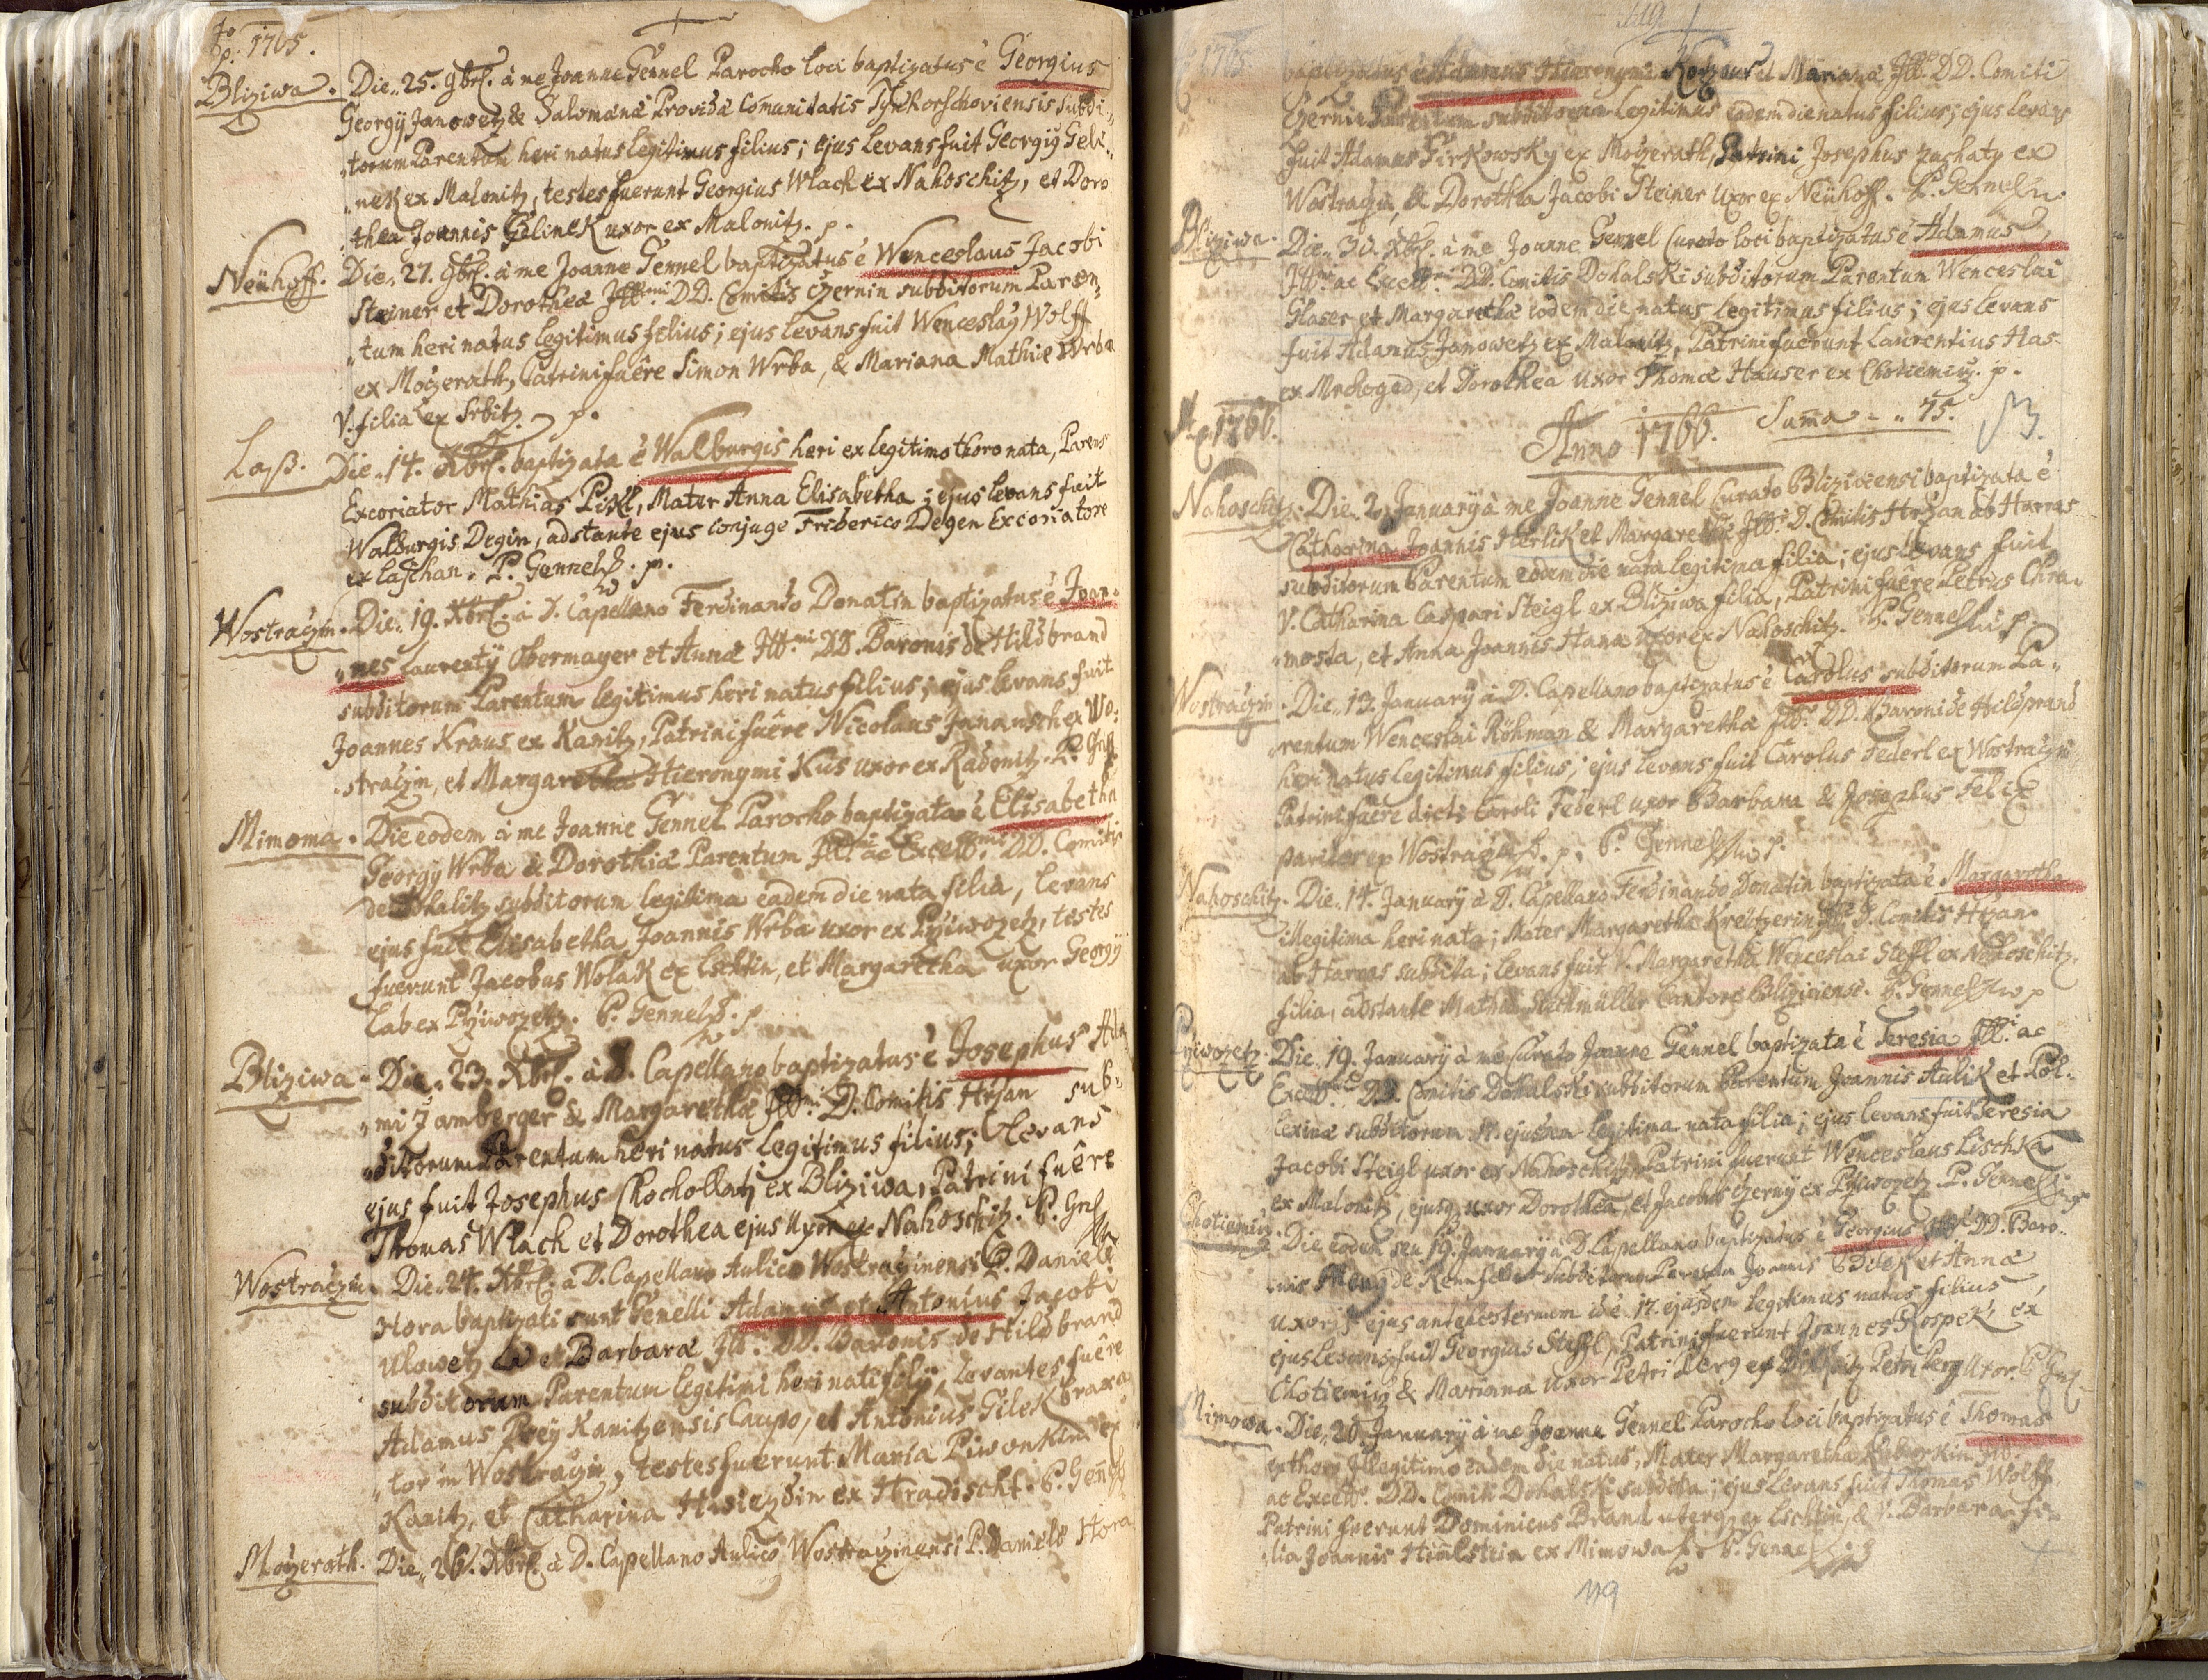 1765.
Bliziwa. Die 25. 9brl. à me Joanne Gennel Parocho loci baptizatus ē Georgius
Georgÿ Janowetz & Salomena Provida Comunitatis subdi„
„torum Parentum heri natus legitimus filius; ejus levans fuit Georgiÿ Geli„
„nek ex Malonitz, testes fuerunt Georgius Wlach ex Nahoschitz, et Doro
„thea Joannis Gelinek uxor ex Malonitz. p.
Neühoff. Die 27. 9brl. à me Joanne Gennel baptizatus ē Wenceslaus Jacobi
Steiner et Dorothea Illmi DD. Comitis Czernin subditorum Paren„
„tum heri natus legitimus filius; ejus levans fuit Wenceslaÿ Wolff
ex Mogzerath, Patrini fuêre Simon Wrba, & Mariana Mathiæ Wrba
V. filia ex Srbitz. p.
Laß. Die 14. Xbrl. baptizata ē Walburgis heri ex legitimo thoro nata, Parens
Excoriator Mathias Pikl, Mater Anna Elisabetha; ejus levans fuit
Walburgis Degin, adstante ejus conjuge Friderico Degen Excoriatore
ex Laschan. P. Gennel. p.
Wostraczin. Die 19. Xbrl. à D. Capellano Ferdinando Donatin baptizatus ē Joan„
„nes Laurentÿ Obermayer et Annæ Illmi DD. Baronis de Hildbrand
subditorum Parentum legitimus heri natus filius; ejus levans fuit
Joannes Kraus ex Kanitz, Patrini fuêre Nicolaus Jananschek ex Wo„
„straczin, et Margaretha Hieronymi Kus uxor ex Radonitz. P.
Mimowa. Die eodem à me Joanne Gennel Parocho baptizata ē Elisabetha
Georgÿ Wrba & Dorothiæ Parentum Illmi ac Excellmi DD. Comitis
de Dohalitz subditorum legitima eadem die nata filia, levans
ejus fuit Elisabetha Joannis Wrba uxor ex Pÿiwozetz, testes
fuerunt Jacobus Wolak ex Lschtin, et Margaretha uxor Georgÿ
Lab ex Pÿiwozetz. P. Gennel. p.
Bliziwa. Die 23. Xbrl. à D. Capellano baptizatus ē Josephus Ada
„mi Jamberger & Margarethæ Illmi D. Comitis Hrzan sub„
„ditorum Parentum heri natus legitimus filius; levans
ejus fuit Josephus Chochollatz ex Bliziwa, Patrini fuêre
Thomas Wlach et Dorothea ejus uxor ex Nahoschitz. P.
Wostraczin Die 24. Xbrl. à D. Capellano Aulico Wostraczinensi P. Daniele
Hora baptizati sunt Gemelli Adamus et Antonius Jacobi
Ulowetz et Barbaræ Ill. DD. Baronis de Hildbrand
subditorum Parentum legitimi heri nati filÿ, Levantes fuêre
Adamus Preÿ Kanitzensis Caupo, et Antonius Gilek braxa
„tor in Wostraczin, testes fuerunt Maria Piwonkin ex
Kanitz, et Catharina ex Hradischt. P.
Mogzerath. Die 26. Xbrl. à D. Capellano Aulico Wostraczinensi P. Daniele Hora
119
1765 baptizatus ē Adamus Hieronymi et Mariana Ill. DD. Comiti
Czernin Parentum subditorum legitimus eadem die natus filius; ejus levans
fuit Adamus Firkowsky ex Mogzerath, Patrini Josephus ex
Wostraczin, & Dorothea Jacobi Steiner uxor ex Neühoff. P. Gennel
Bliziwa. Die 30. Xbrl. à me Joanne Gennel Curato loci baptizatus ē Adamus
Illmi ac Excell. DD. Comitis Dohalski subditorum Parentum Wenceslai
Glaser et Margarethæ eodem die natus legitimus filius; ejus levans
fuit Adamus Janowetz ex Malonitz, Patrini fuerunt Laurentius Has
ex Mrchoged, et Dorothea uxor Thomæ Hauser ex Chotiemitz. p.
1766. Anno 1766. Suma - „ 75.
Nahoschitz. Die 2. Januarÿ à me Joanne Gennel Curato Bliziviensi baptizata ē
Catharina Joannis Herlik et Margarethæ Ill. D. Comitis Hrzan ab Harras
subditorum Parentum eodem die nata legitima filia; ejus levans fuit
V. Catharina Caspari Steigl ex Bliziwa filia, Patrini fuêre Petrus Chra„
„mosta, et Anna Joannis Hanæ uxor ex Nahoschitz. P. Gennel
Wostraczin. Die 13. Januarÿ à D. Capellano baptizatus ē Carolus subditorum Pa„
„rentum Wenceslai Röhman & Margaretha Ill. DD. Baroni de Hildprand
heri natus legitimus filius; ejus levans fuit Carolus Federl ex Wostraczin,
Patrini fuêre dicti Caroli Federl uxor Barbara & Josephus Felix
pariter ex Wostraczin. p. P. Gennel
Nahoschitz. Die 14. Januarÿ à D. Capellano Ferdinando Donatin baptizata ē Margaretha
illegitima heri nata; Mater Margaretha Kreützerin Ill. D. Comitis Hrzan
ab Harras subdita; levans fuit V. Margaretha Wenceslai Steffl ex Nahoschitz
filia, adstante Mathia Cantore Bliziviensi. P. Gennel
Pÿiwozetz. Die 19. Januarÿ à me Curato Joanne Gennel baptizata ē Teresia Ill. ac
Excell. DD. Comitis Dohalski subditorum Parentum Joannis Aulik et Pol„
„lexinæ subditorum ejusdem legitima nata filia; ejus levans fuit Teresia
Jacobi Steigl uxor ex Nahoschitz, Patrini fuerunt Wenceslaus Lischka
ex Malonitz, ejusq uxor Dorothea, et Jacobus Czernÿ ex Pÿiwozetz. P. Gennel
Chotiemitz. Die eodem seu 19. Januarÿ à D. Capellano baptizatus ē Georgius Ill. DD. Baro„
„nis de subditorum Parentum Joannis et Anna
uxoris ejus antehesternum id ē 17. ejusdem legitimus natus filius,
ejus levans fuit Georgius Steffl, Patrini fuerunt Joannes Kospek ex
Chotiemitz & Mariana uxor Petri Perg ex Petri Perg uxor.
Mimowa. Die 20. Januarÿ à me Joanne Gennel Parocho loci baptizatus ē Thomas
ex thoro Illegitimo eadem die natus, Mater Margaretha Ill.
ac Excell. DD. Comiti Dohalski subdita; ejus levans fuit Thomas Wolff
Patrini fuerunt Dominicus Brand uterq ex Lschtin, & V. Barbara fi„
„lia Joannis Himlstein ex Mimowa. P. Gennel
119